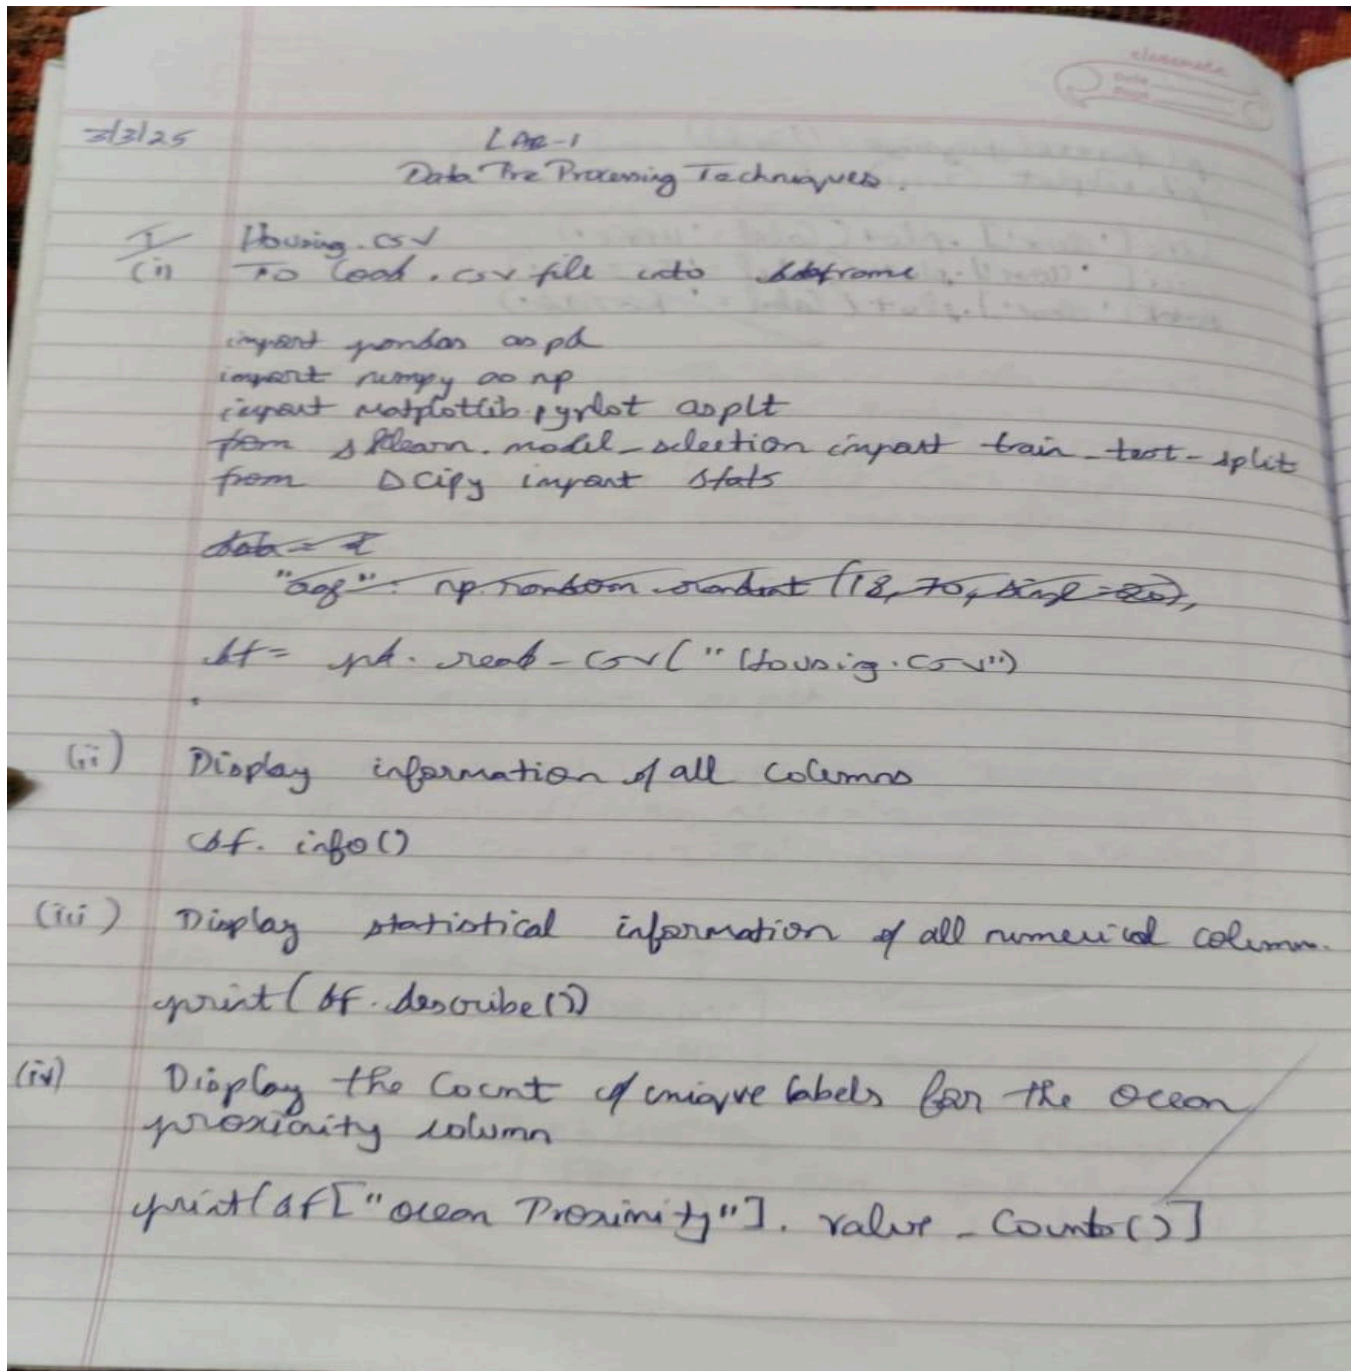 classmate
Date
Page
3/3/25
LAB-1
Data Pre Processing Techniques.
I Housing.csv
(i) To load .csv file into dataframe.
import pandas as pd
import numpy as np
import matplotlib.pyplot as plt
from sklearn.model_selection import train_test_split
from scipy import stats
data = {
"age": np.random.randint(18, 70, size=20),
df = pd.read_csv("Housig.csv")
(ii) Display information of all columns
df.info()
(iii) Display statistical information of all numerical column.
print(df.describe())
(iv) Display the Count of unique labels for the ocean
proximity column
print(df["ocean Proximity"].value_counts()]